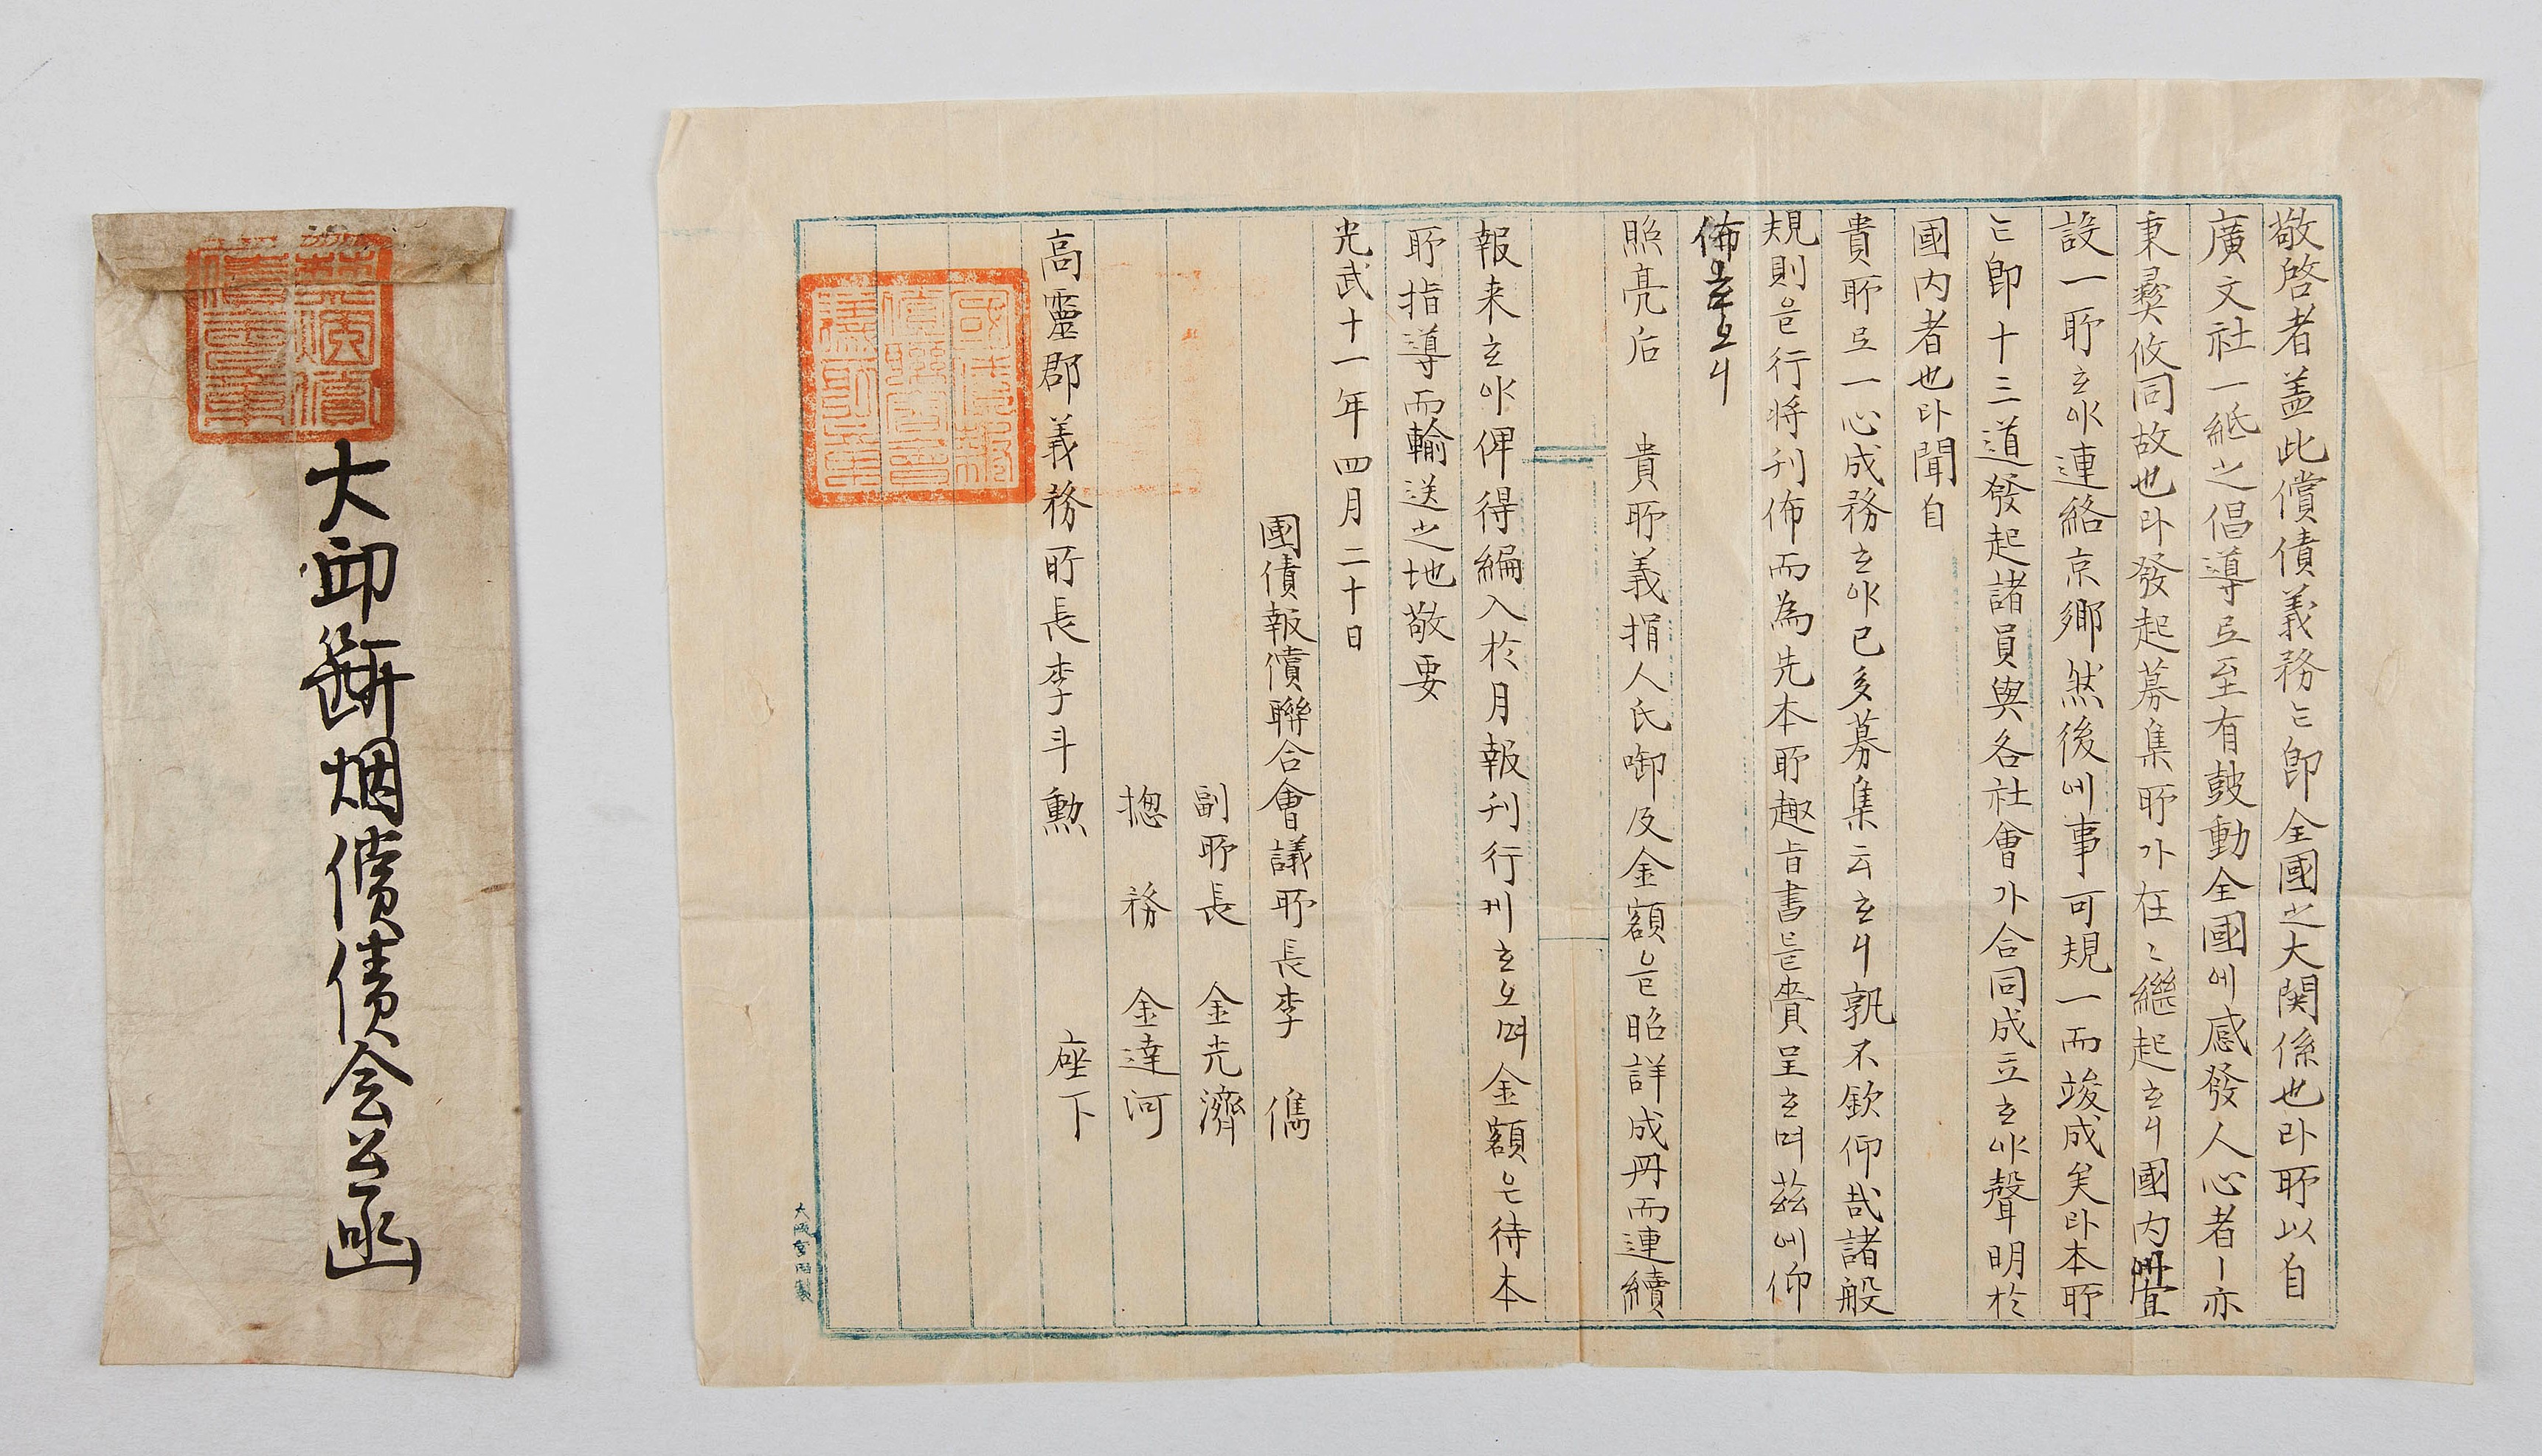 敬啓者盖此償債義務는卽全國之大関係也라所以自
廣文社一紙之倡導로至有鼓動全國에感發人心者ㅣ亦
秉彛攸同故也라發起募集所가在々繼起하니國內에宜
設一所하야連絡京鄉然後에事可規一而竣成矣라本所
는卽十三道發起諸員與各社會가合同成立하야聲明於
國內者也라聞自
貴所로一心成務하야已多募集云하니孰不欽仰哉諸般
規則은行將刊佈而為先本所趣旨書를賚呈하며玆에仰
佈하오니
照亮后 貴所義捐人氏啣及金額을昭詳成冊而連續
報来하야俾得編入於月報刊行케하오며金額은待本
所指導而輸送之地敬要
光武十一年四月二十日
國債報償聯合會議所長李 儁
副所長 金光濟
摠務 金達河
高靈郡義務所長李斗勲 座下
國債報
償聯合會
議所之章
大邱斷烟償債会公函